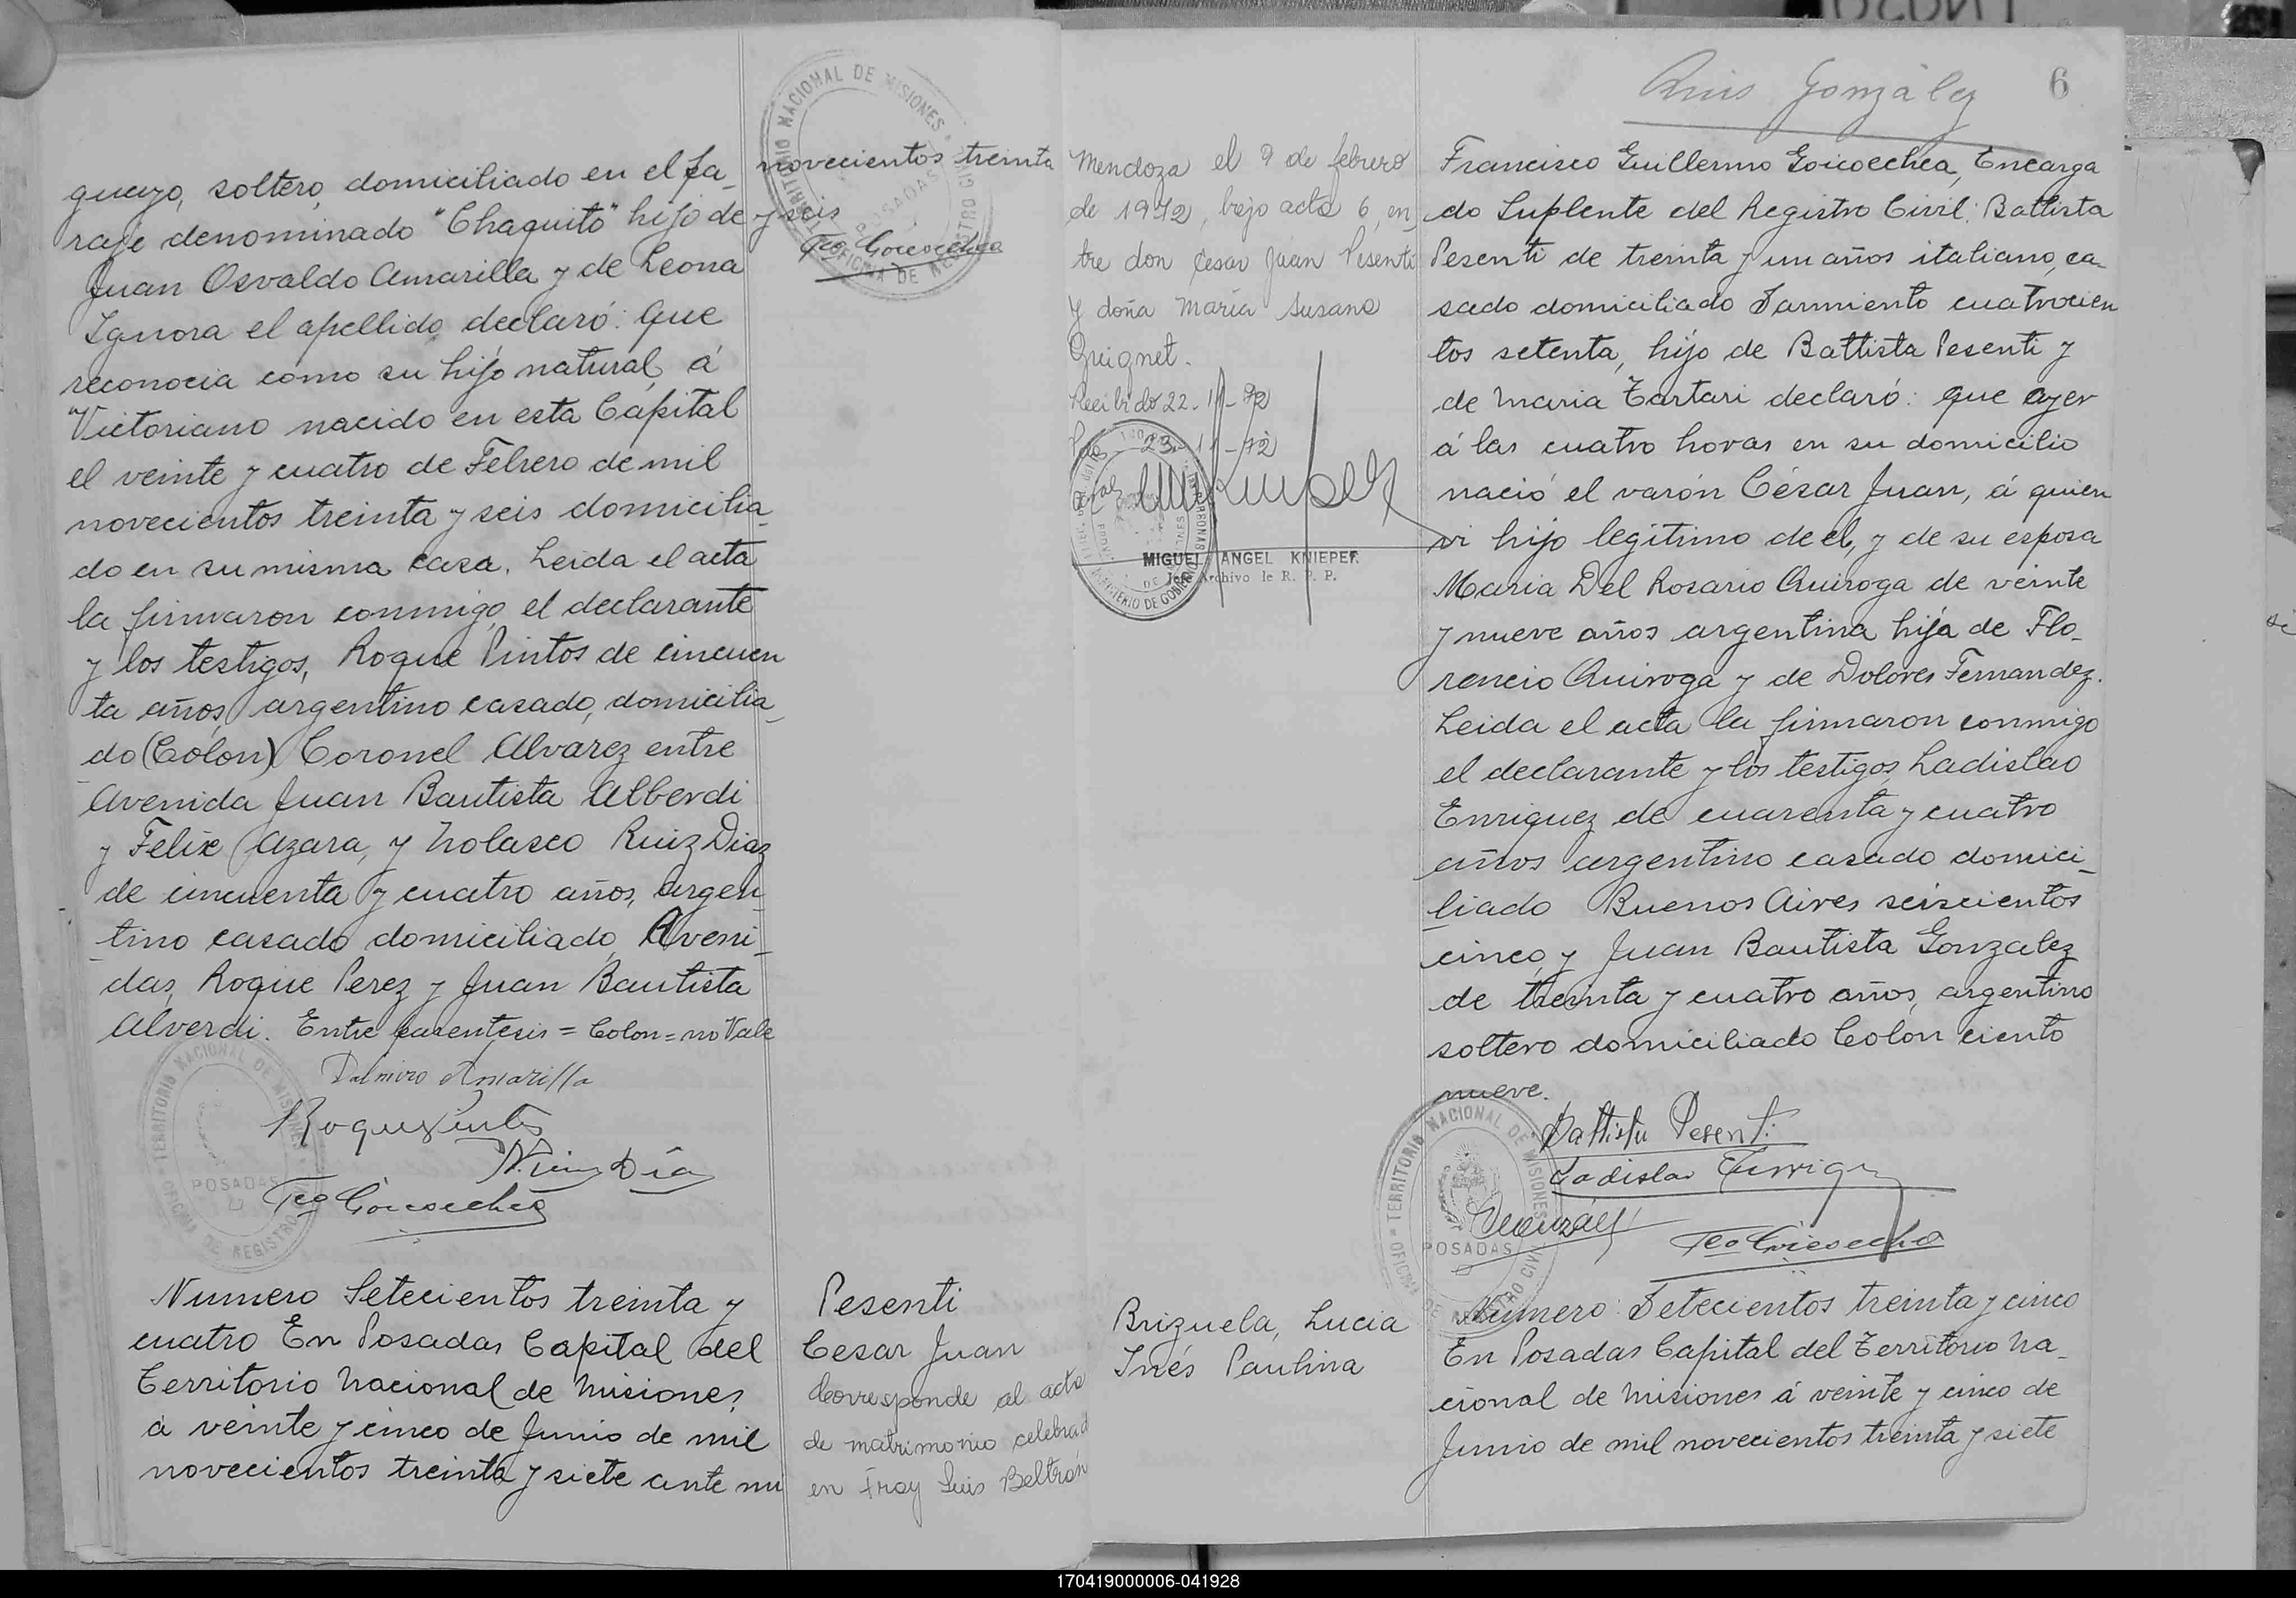 guayo, soltero, domiciliado en el pa_
raje denominado "Chaquito" hijo de
Juan Osvaldo Amarilla y de Leona
Ignora el apellido, declaró: que
reconocia como su hijo natural, á
"Victoriano nacido en esta Capital
el veinte y cuatro de Febrero de mil
novecientos treinta y seis domicilia_
do en su misma casa. Leida el acta
la firmaron conmigo, el declarante
y los testigos, Roque Pintos de cincuen
ta años, argentino casado, domicilia_
do (Colón) Coronel Alvarez entre
Avenida Juan Bautista Alberdi
y Felix Azara, y Nolasco Ruiz Diaz
de cincuenta y cuatro años, argen_
tino casado domiciliado, Aveni_
das, Roque Perez y Juan Bautista
Alverdi. Entre parentesis = Colon = no Vale
Dalmiro Amarilla
Roque Pintos
N. Ruiz Día
Fco Goicoechea
TERRITORIO NACIONAL DE MISIONES
POSADAS
OFICINA DE REGISTRO CIVIL
Numero Setecientos treinta y
cuatro En Posadas Capital del
Territorio Nacional de Misiones,
á veinte y cinco de Junio de mil
novecientos treinta y siete ante mi
novecientos treinta
y seis
Fco Goicoechea
TERRITORIO NACIONAL DE MISIONES
POSADAS
OFICINA DE REGISTRO CIVIL
Pesenti
Cesar Juan
Corresponde al acta
de matrimonio celebrad
en Fray Luis Beltrán
Ruis González
6
Mendoza el 9 de febrero
de 1972, bajo acta 6, en_
tre don Cesar Juan Pesenti
y doña María Susana
Guignet.
Recibido 22-11-72
23-11-72
MIGUEL ANGEL KNIEPER
Jefe Archivo de R. P. P.
MINISTERIO DE GOBIERNO
Francisco Guillermo Goicoechea, Encarga
do Suplente del Registro Civil: Battista
Pesenti de treinta y un años italiano, ca_
sado domiciliado Sarmiento cuatrocien
tos setenta, hijo de Battista Pesenti y
de Maria Tartari declaró: que ayer
á las cuatro horas en su domicilio
nació el varón César Juan, á quien
vi hijo legítimo de el, y de su esposa
Maria Del Rosario Quiroga de veinte
y nueve años argentina hija de Flo_
rencio Quiroga y de Dolores Fernandez.
Leida el acta la firmaron conmigo
el declarante y los testigos, Ladislao
Enriquez de cuarenta y cuatro
años argentino casado domici_
liado Buenos Aires seiscientos
cinco, y Juan Bautista Gonzalez
de treinta y cuatro años, argentino
soltero domiciliado Colón ciento
nueve.
Battista Pesenti
Ladislao Enriquez
Fco Goicoechea
TERRITORIO NACIONAL DE MISIONES
POSADAS
OFICINA DE REGISTRO CIVIL
Brizuela, Lucia
Inés Paulina
Numero: Setecientos treinta y cinco
En Posadas Capital del Territorio Na_
cional de Misiones á veinte y cinco de
Junio de mil novecientos treinta y siete
170419000006-041928